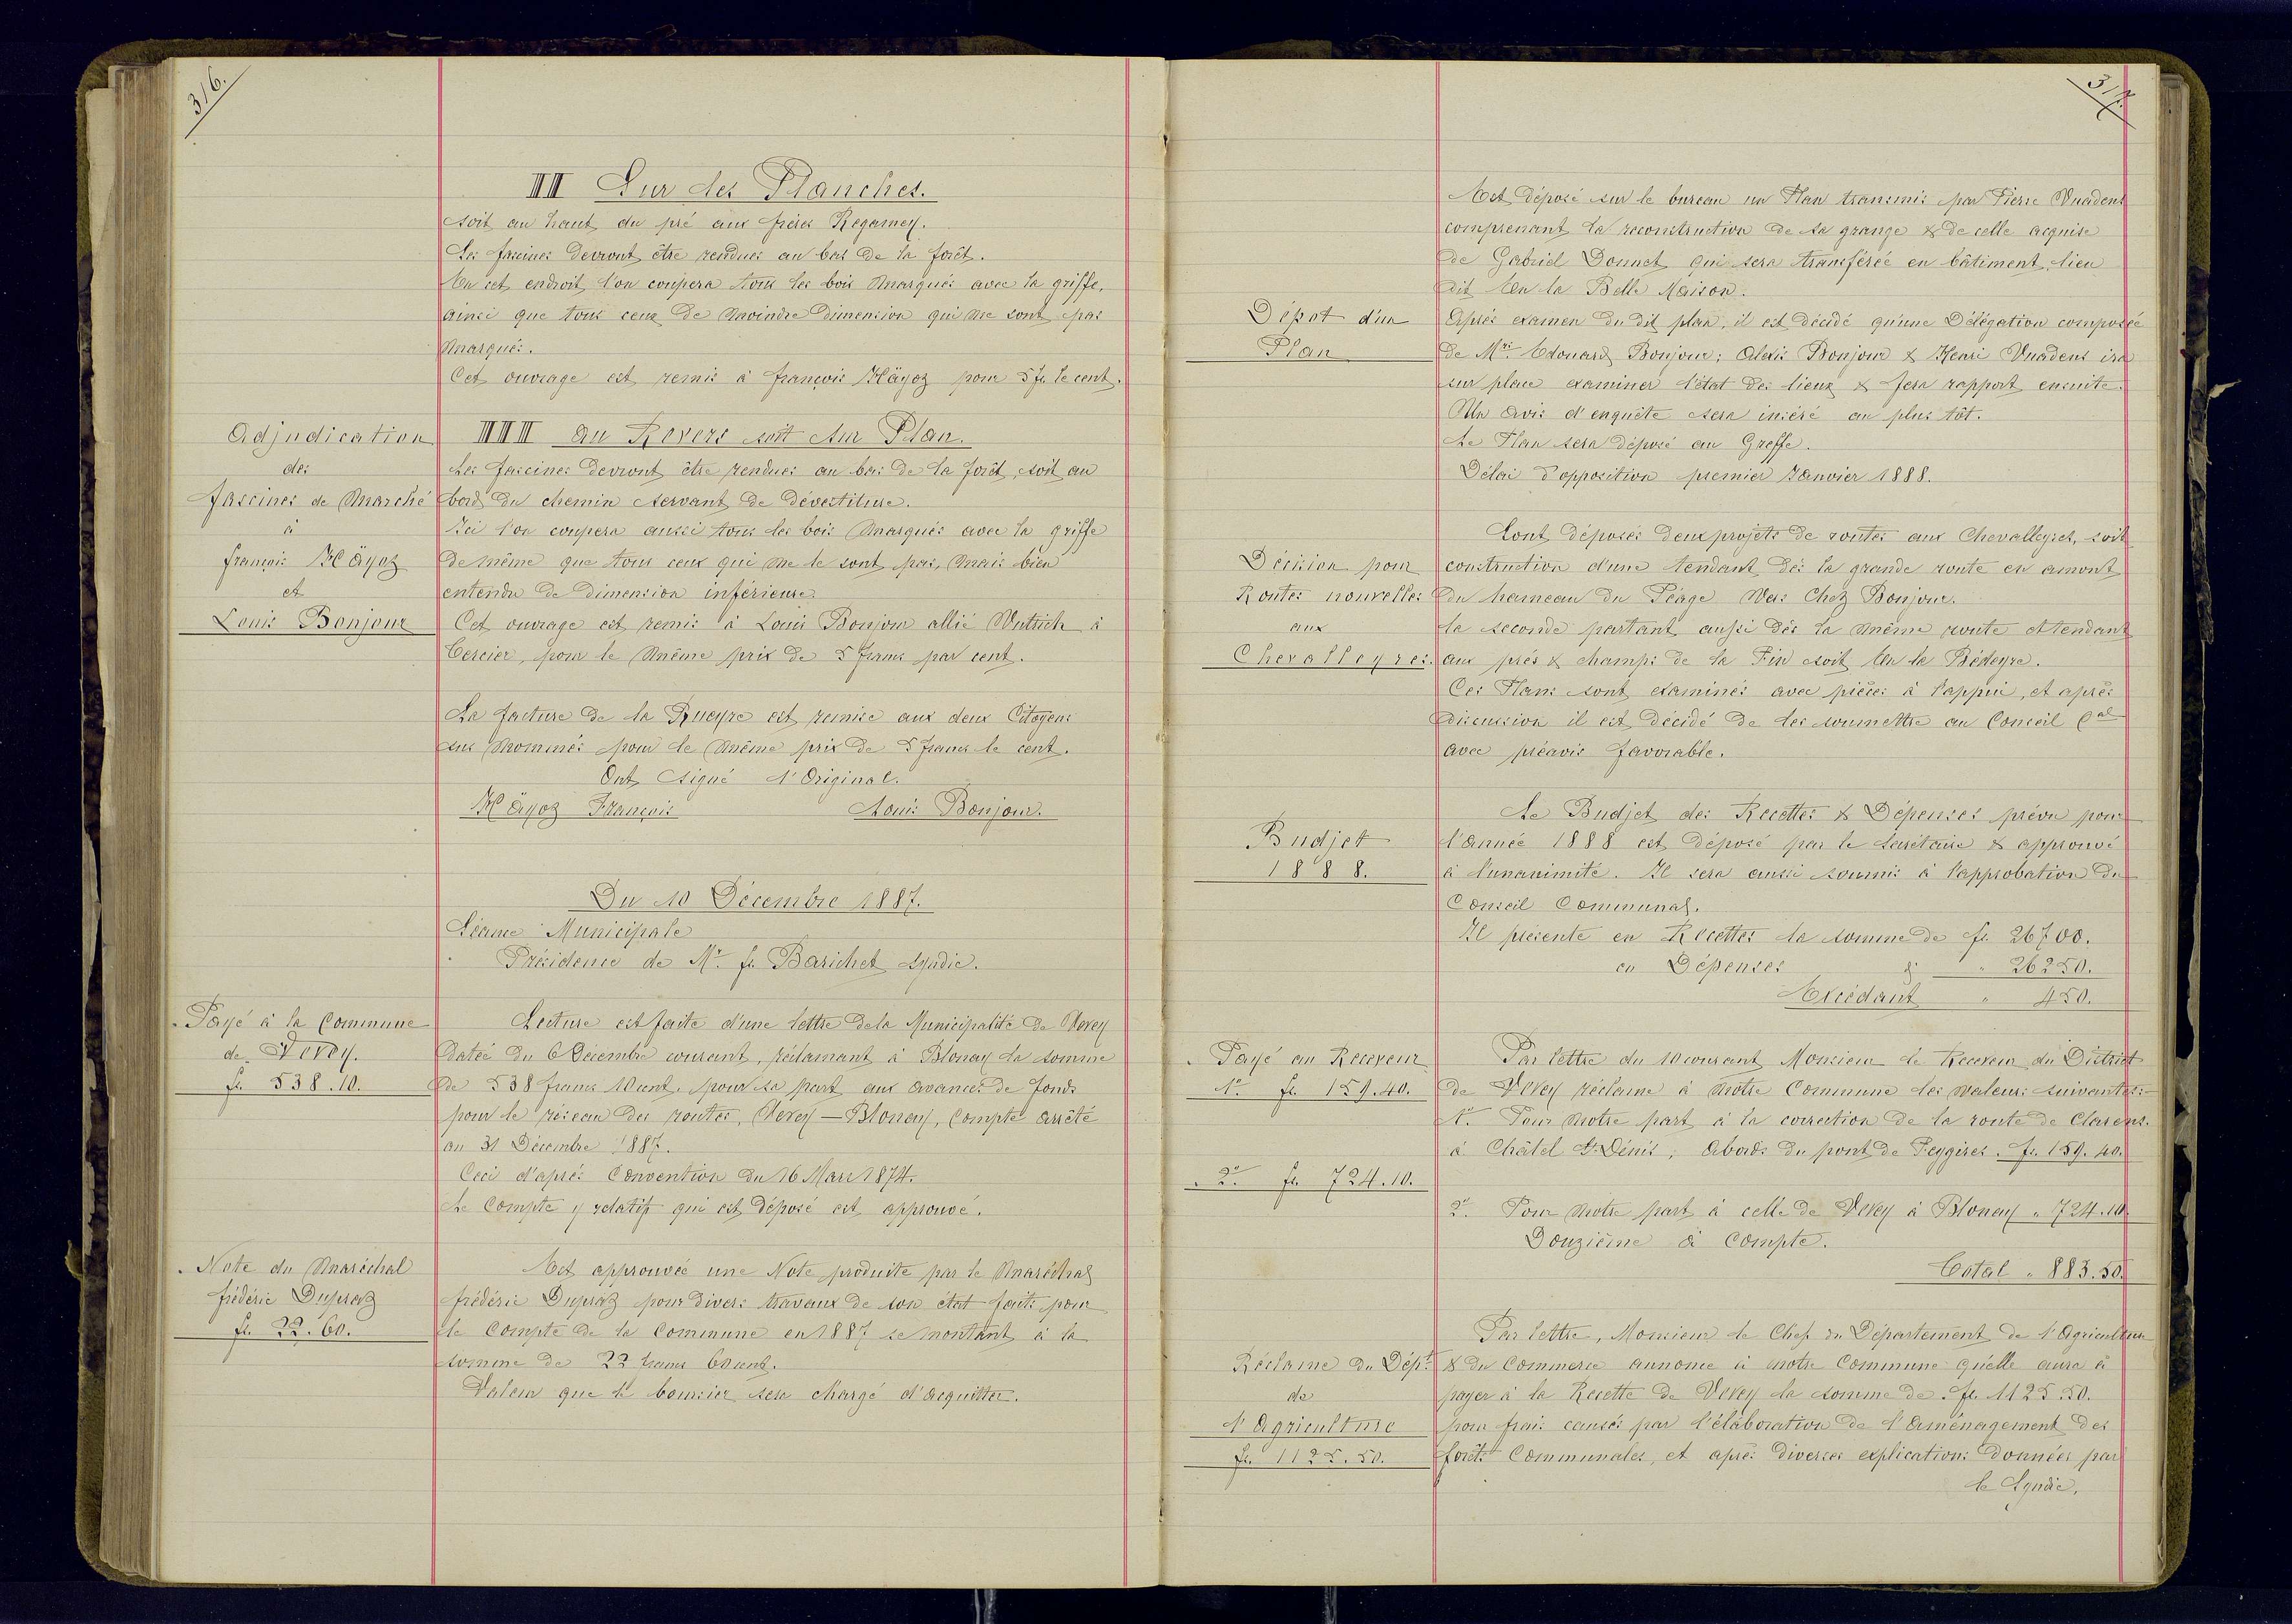 316.
II Sur des Planches.
soit au haut du pré aux frères Regamey.
Les fascines devront être rendues au bas de la forêt.
En cet endroit, l'on coupera tous les bois marqués avec la griffe,
ainsi que tous ceux de moindre dimension qui ne sont pas
marqués.
Cet ouvrage est remis à françois Häyoz pour 5 fr. le cent.
Adjudication
des
fascines de marché
à
françois Häyoz
et
Louis Bonjour
III au Revers soit sur Plan.
Les fascines devront être rendues au bas de la forêt, soit au
bord du chemin servant de dévestiture.
Ici l'on coupera aussi tous les bois marqués avec la griffe
de même que tous ceux qui ne le sont pas, mais bien
entendu de dimension inférieure.
Cet ouvrage est remis à Louis Bonjour allié Wutrich à
Cercier, pour le même prix de 5 francs par cent.
La facture de la Rueyre est remise aux deux Citoyens
sus nommés pour le même prix de 5 francs le cent.
Ont signé l'Original.
Häyoz François Louis Bonjour.
Du 10 Décembre 1887.
Séance Municipale
Présidence de Mr. fs. Barichet syndic.
Payé à la Commune
de Vevey.
fr. 538.10.
Lecture est faite d'une lettre de la Municipalité de Vevey
datée du 6 Décembre courant, réclamant à Blonay la somme
de 538 francs 10 cent. pour sa part aux avances de fonds
pour le réseau des routes, Vevey — Blonay, Compte arrêté
au 31 Décembre 1887.
Ceci d'après Convention du 16 Mars 1874.
Le Compte y relatif qui est déposé est approuvé.
Note du maréchal
frédéric Dupraz
fr. 22.60.
Est approuvée une Note produite par le maréchal
frédéric Dupraz pour divers travaux de son état faits pour
le Compte de la Commune en 1887 se montant à la
somme de 22 francs 60 cent.
Valeur que le boursier sera chargé d'acquitter.
317.
Est déposé sur le bureau un Plan transmis par Pierre Vuadens
comprenant la reconstruction de sa grange & de celle acquise
de Gabriel Donnet qui sera transférée en bâtiment, lieu
dit En la Belle Maison.
Dépot d'un
Plan
Après examen du dit plan, il est décidé qu'une Délégation composée
de Mrs. Edouard Bonjour; Alexis Bonjour & Henri Vuadens ira
sur place examiner l'état des lieux & fera rapport ensuite.
Un avis d'enquête sera inséré au plus tôt.
Le Plan sera déposé au Greffe.
Délai d'opposition premier Janvier 1888.
Décision pour
Routes nouvelles
aux
Chevalleyres.
Sont déposés deux projets de routes aux Chevalleyres, soit
construction d'une tendant dès la grande route en amont
du hameau du Péage Vers Chez Bonjour.
la seconde partant aussi dès la même route et tendant
aux prés & champs de la Fin soit En la Bédeyre.
Ces Plans sont examinés avec pièces à l'appui, et après
discussion il est décidé de les soumettre au Conseil Cal
avec préavis favorable.
Budjet
1888.
Le Budjet des Recettes & Dépenses prévu pour
l'année 1888 est déposé par le secrétaire & approuvé
à l'unanimité. Il sera aussi soumis à l'approbation du
Conseil Communal.
Il présente en Recettes la somme de fr. 26700.
en Dépenses d° " 26250.
Excédant " 450.
Payé au Receveur
1° fr. 159.40.
2° fr. 724.10.
Par lettre du 10 courant Monsieur le Receveur du District
de Vevey réclame à notre Commune les valeurs suivantes:
1° Pour notre part à la correction de la route de Clarens.
à Châtel St. Dénis; Abords du pont de Feygires. fr. 159.40.
2° Pour notre part à celle de Vevey à Blonay " 724.10
Douzième à Compte.
Total " 883.50.
Réclame du Dépt.
de
l'Agriculture
fr. 1125.50.
Par lettre, Monsieur le Chef du Département de l'Agriculture
& du Commerce annonce à notre Commune qu'elle aura à
payer à la Recette de Vevey la somme de fr. 1125.50.
pour frais causés par l'élaboration de l'aménagement des
forêts Communales, et après diverses explications données par
le Syndic.